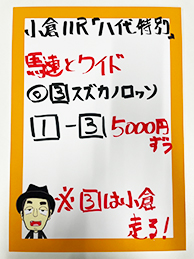 小倉11R「八代特別」
馬連とワイド
◎③スズカノロッソ
1-3 5000円
ずつ
※③は小倉
走る!